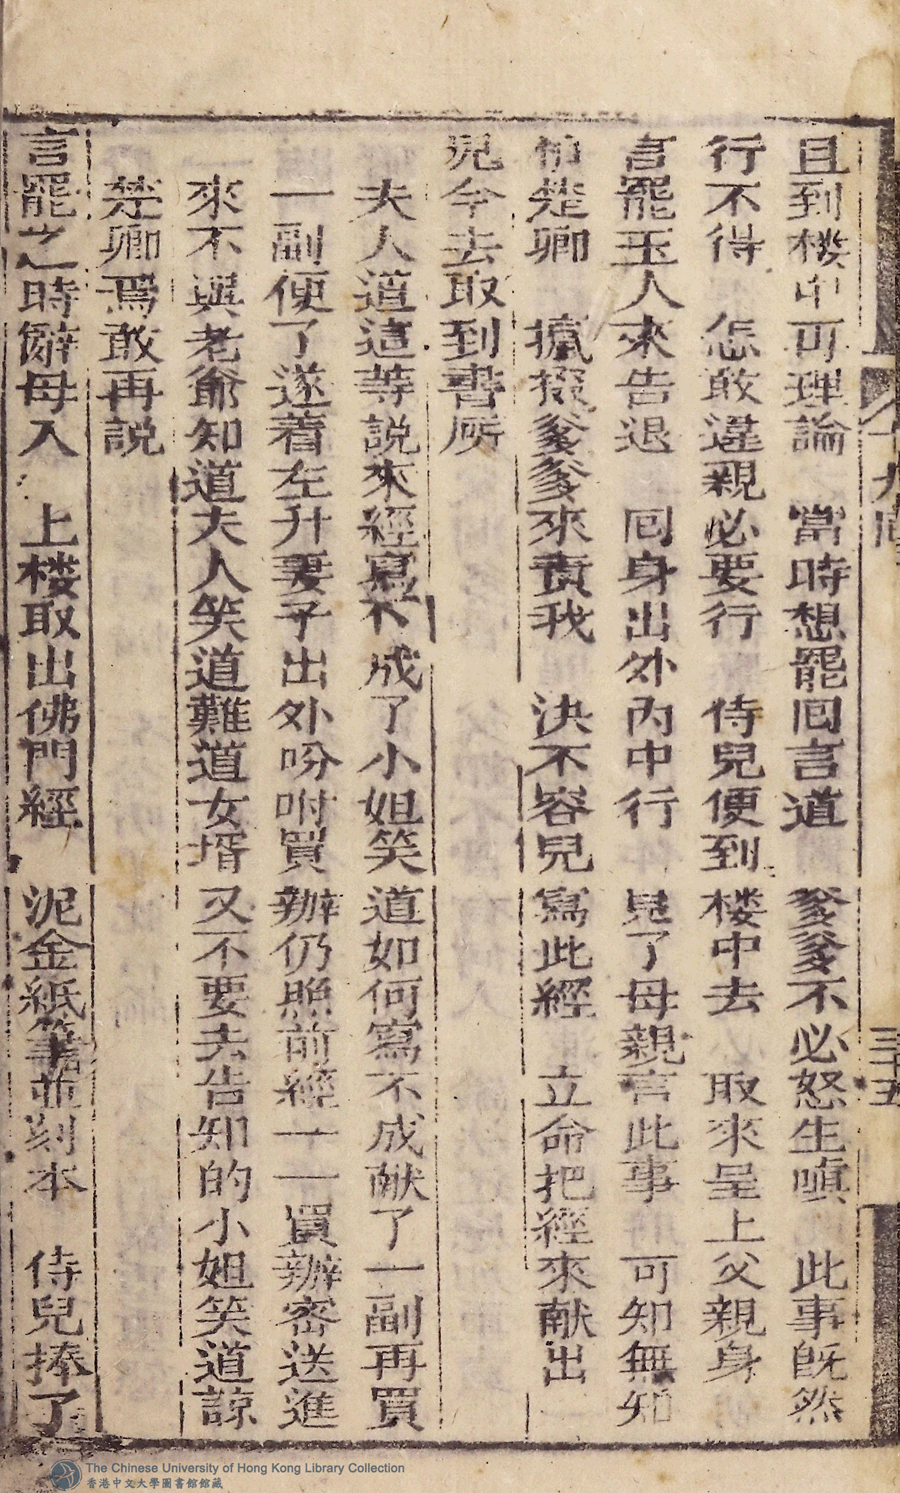 且到楼中可理論　當時想罷囘言道　爹爹不必怒生嗔　此事旣然
行不得　怎敢違親必要行　侍兒便到楼中去　取來呈上父親身
言罷玉人來告退　囘身出外內中行　見了母親言此事　可知無知
楚卿　爹爹來責我　決不容兒寫此經　立命把經來献出
兒今去取到書房
夫人道這等說來經寫不成了小姐笑道如何寫不成献了一副再買
一副便了遂着左升妻子出外吩咐買辦仍照前經一一買辦密送進
來不與老爺知道夫人笑道難道女壻又不要去告知的小姐笑道諒
楚卿焉敢再說
言罷之時辭母入　上楼取出佛門經　泥金紙筆並刻本　侍兒捧了
十九囘
三十五
The Chinese University of Hong Kong Library Collection
香港中文大學圖書館館藏